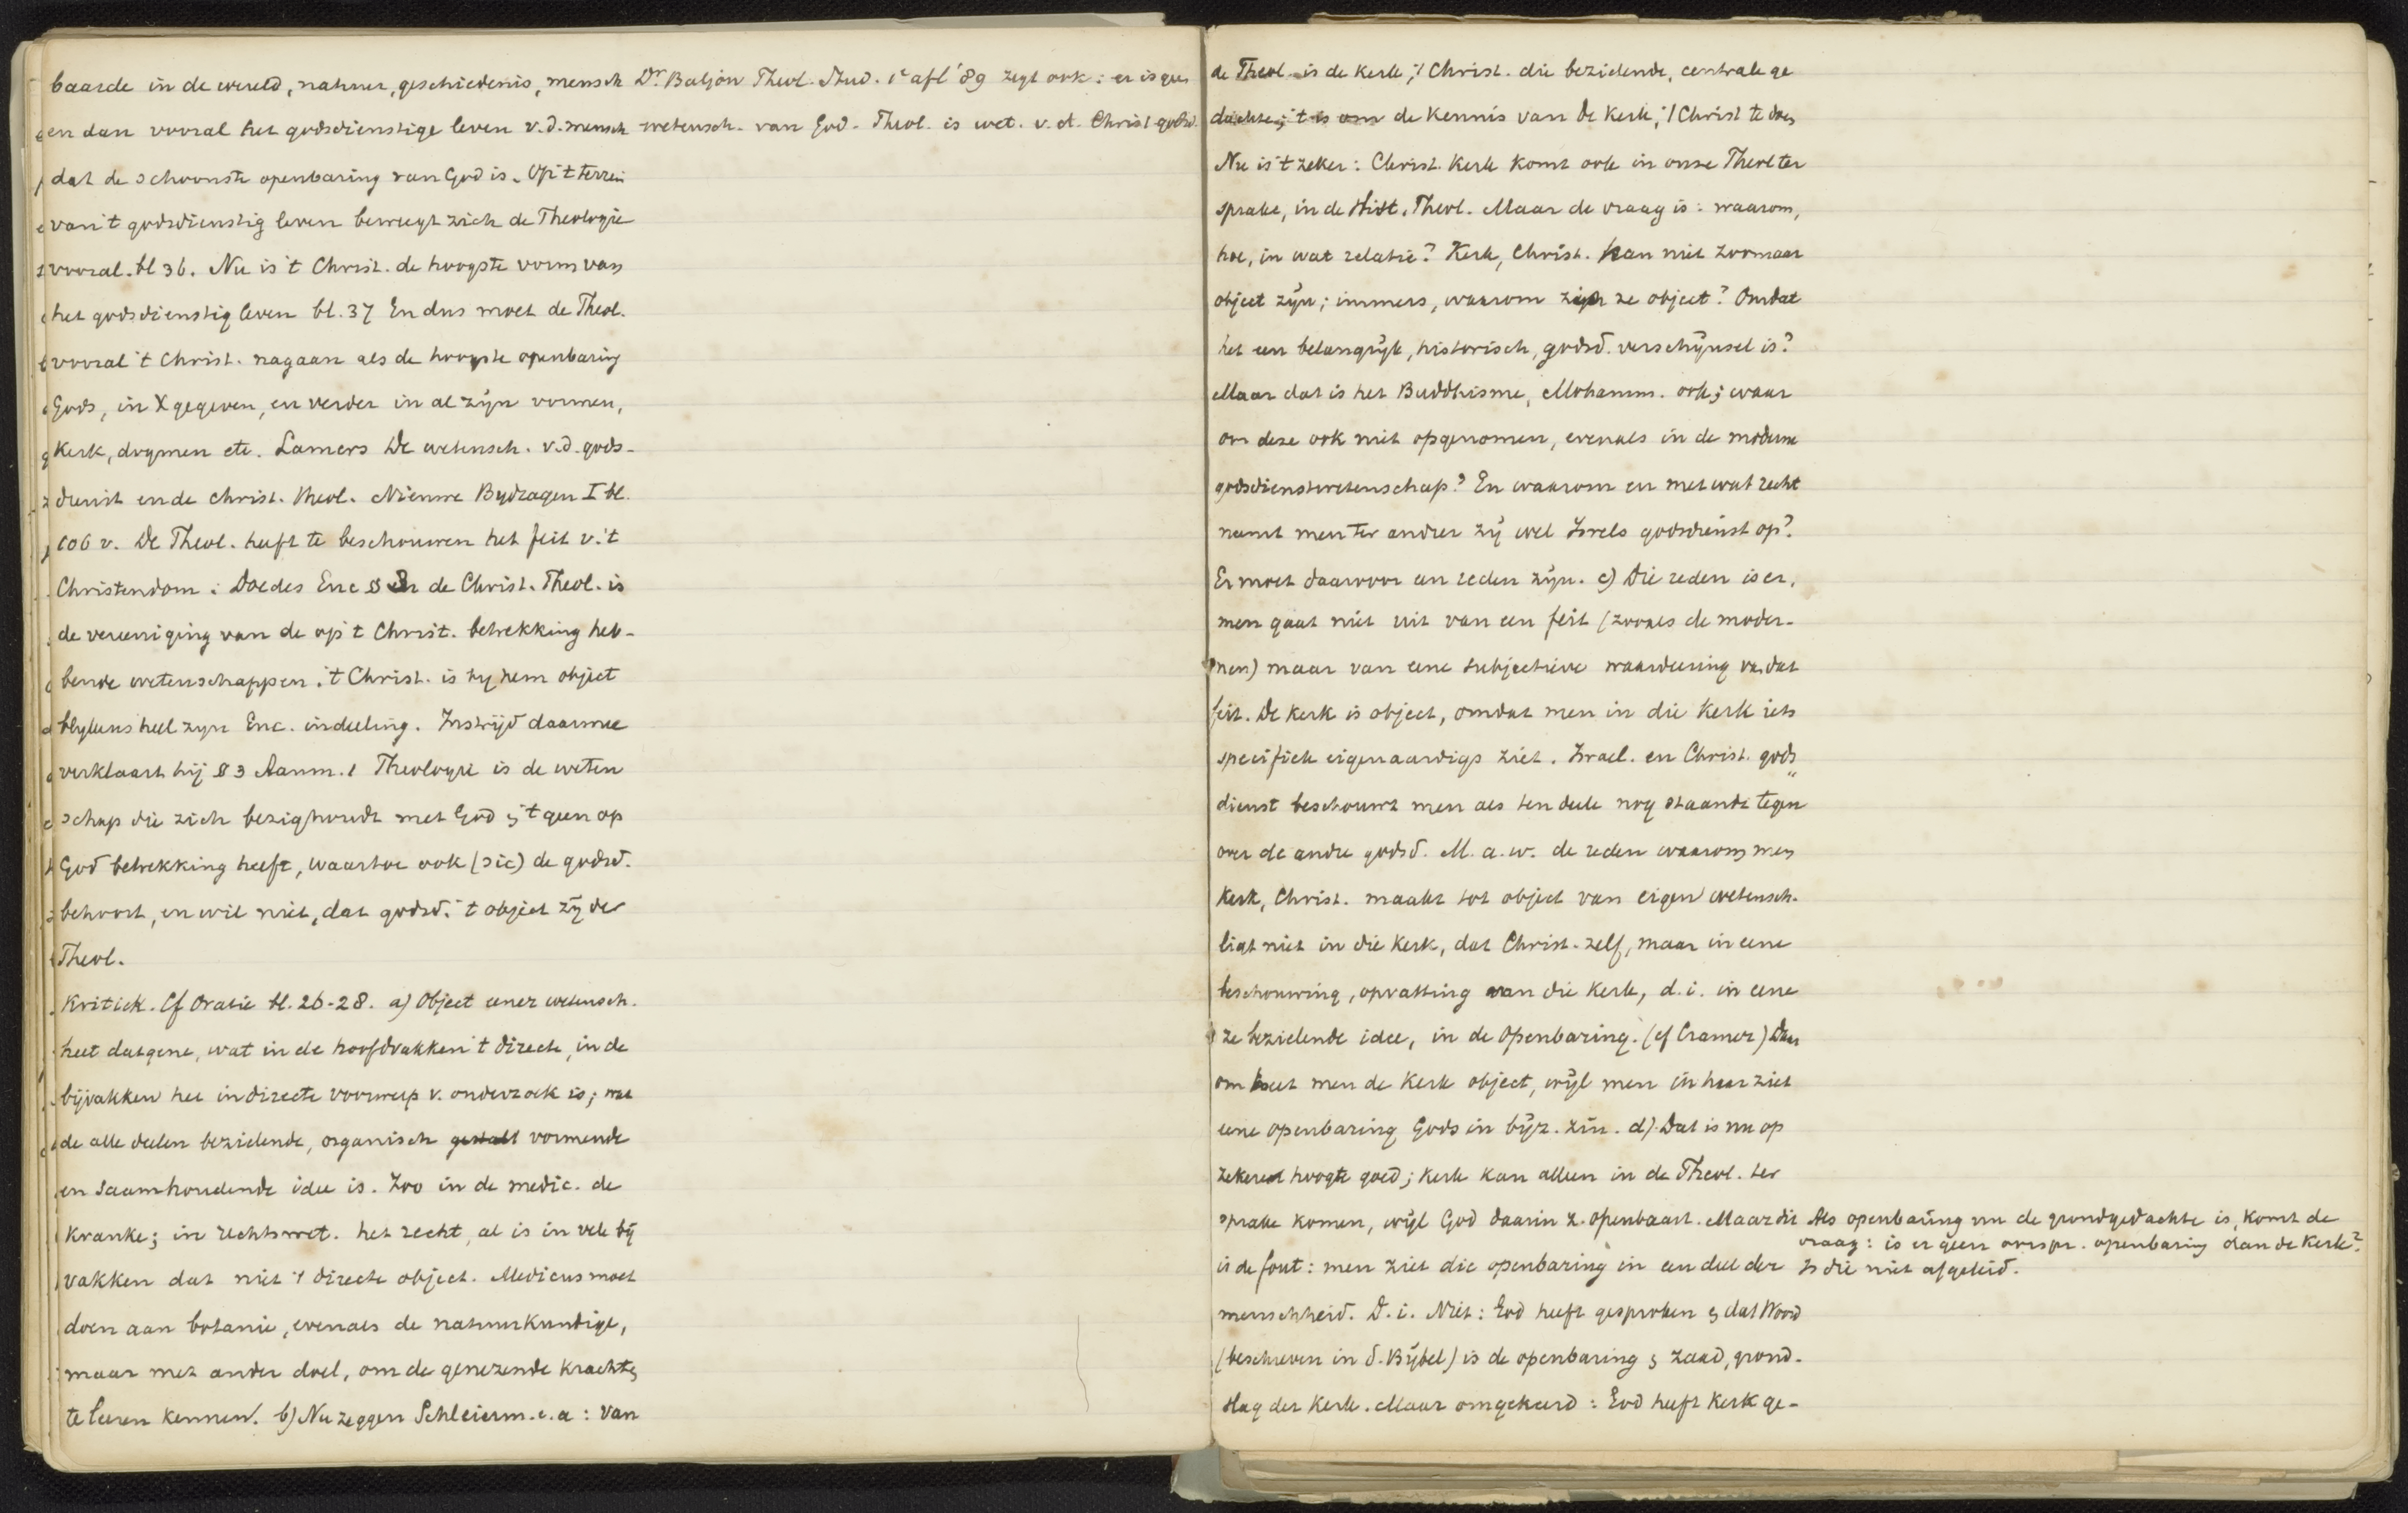 baarde in de wereld, natuur, geschiedenis, mensch
en dan vooral het godsdienstige leven v.d. mensch
dat de schoonste openbaring van God is. Op 't terrein
van 't godsdienstig leven beweegt zich de Theologie
vooral. bl 36. Nu is 't Christ. de hoogste vorm van
het godsdienstig leven bl. 37 En dus moet de Theol.
vooral 't Christ. nagaan als de hoogste openbaring
Gods, in X gegeven, en verder in al zijn vormen,
Kerk, dogmen etc. Lamers De wetensch. v.d. gods-
dienst en de christ. theol. Nieuwe Bijdragen I bl.
106 v. De Theol. heeft te beschouwen het feit v. 't
Christendom: Doedes Enc § de Christ. Theol. is
de vereeniging van de op 't Christ. betrekking heb-
bende wetenschappen. 't Christ. is bij hem object
blijkens heel zijn Enc. indeeling. In strijd daarmee
verklaart hij § 3 Aanm. 1 Theologie is de weten
schap die zich bezighoudt met God & 't geen op
God betrekking heeft, waartoe ook (sic) de godsd.
behoort, en wil niet, dat godsd. 't object zij der
Theol.
Kritiek. Cf Oratie bl. 26-28. a) Object eener wetensch.
heet datgene, wat in de hoofdvakken 't directe, in de
bijvakken het indirecte voorwerp v. onderzoek is; wat
de alle deelen bezielende, organisch gestalt vormende
en saamhoudende idee is. Zoo in de medic. de
kranke; in rechtswet. het recht, al is in vele bij
vakken dat niet 't directe object. Medicus moet
doen aan botanie, evenals de natuurkundige,
maar met ander doel, om de genezende krachten
te leeren kennen. b) Nu zeggen Schleierm. e.a: van
Dr. Baljon Theol. Stud. 1e afl '89 zegt ook: er is geen
wetensch. van God. Theol. is wet. v. d. Christ godsd.
de Theol. is de kerk, 't Christ. die bezielende, centrale ge
dachte; 't is om de kennis van de kerk, 't Christ te doen
Nu is 't zeker: Christ. Kerk komt ook in onze Theol ter
sprake, in de Hist. Theol. Maar de vraag is: waarom,
hoe, in wat relatie? Kerk, Christ. kan niet zoomaar
object zijn; immers, waarom zijn ze object? Omdat
het een belangrijk, historisch, godsd. verschijnsel is?
Maar dat is het Buddhisme, Mohamm. ook; waar
om deze ook niet opgenomen, evenals in de moderne
godsdienstwetenschap? En waarom en met wat recht
neemt men ter andrer zij wel Isrels godsdienst op?
Er moet daarvoor een reden zijn. c) Die reden is er,
men gaat niet uit van een feit (zooals de moder-
nen) maar van eene subjectieve waardeering van dat
feit. De kerk is object, omdat men in die kerk iets
specifiek eigenaardigs ziet. Israel. en Christ. gods
dienst beschouwt men als ten deele nog staande tegen
over de andre godsd. M. a. w. de reden waarom men
Kerk, Christ. maakt tot object van eigen wetensch.
ligt niet in die kerk, dat Christ. zelf, maar in eene
beschouwing, opvatting van die kerk, d. i. in eene
ze bezielende idee, in de Openbaring. (cf Cramer) Daar
om heet men de kerk object, wijl men in haar ziet
eene openbaring Gods in bijz. zin. d). Dat is nu op
zekere hoogte goed; kerk kan alleen in de Theol. ter
sprake komen, wijl God daarin z. openbaart. Maar dit
is de fout: men ziet die openbaring in een deel der
menschheid. D. i. Niet: God heeft gesproken & dat Woord
(beschreven in d. Bijbel) is de openbaring & zaad, grond-
slag der kerk. Maar omgekeerd: God heeft kerk ge-
Als openbaring nu de grondgedachte is, komt de
vraag: is er geen oorspr. openbaring dan de kerk?
Is die niet afgeleid.